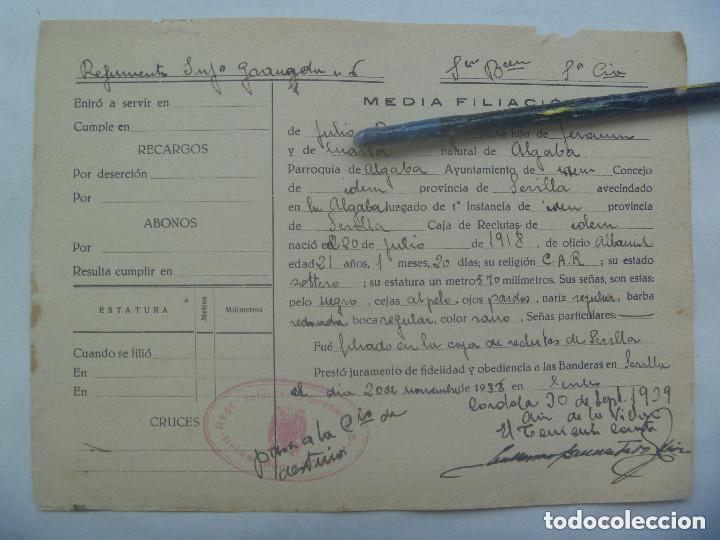 Regimiento Inf
Entró a servir en
Cumple en
RECARGOS
Por deserción
Por
ABONOS
Por
Resulta cumplir en
ESTATURA Metros Milímetros
Cuando se filió
En
En
CRUCES
pasa a la Cia de
destinos
MEDIA FILIACI
de Julio hijo de
y de natural de Algaba
Parroquia de Algaba Ayuntamiento de idem Concejo
de idem provincia de Sevilla avecindado
en La Algaba Juzgado de 1ª Instancia de idem provincia
de Sevilla Caja de Reclutas de idem
nació el 20 de Julio de 1918, de oficio Albañil
edad 21 años, 1 meses, 20 días; su religión C.A.R; su estado
soltero; su estatura un metro 570 milímetros. Sus señas, son estas:
pelo negro, cejas al pelo, ojos pardos, nariz regular, barba
redonda, boca regular, color sano, Señas particulares:
Fué filiado en la caja de reclutas de Sevilla
Prestó juramento de fidelidad y obediencia a las Banderas en Sevilla
el dia 20 de noviembre de 1938
Cordoba 30 de Sept. 1939
El Teniente
todocoleccion.net